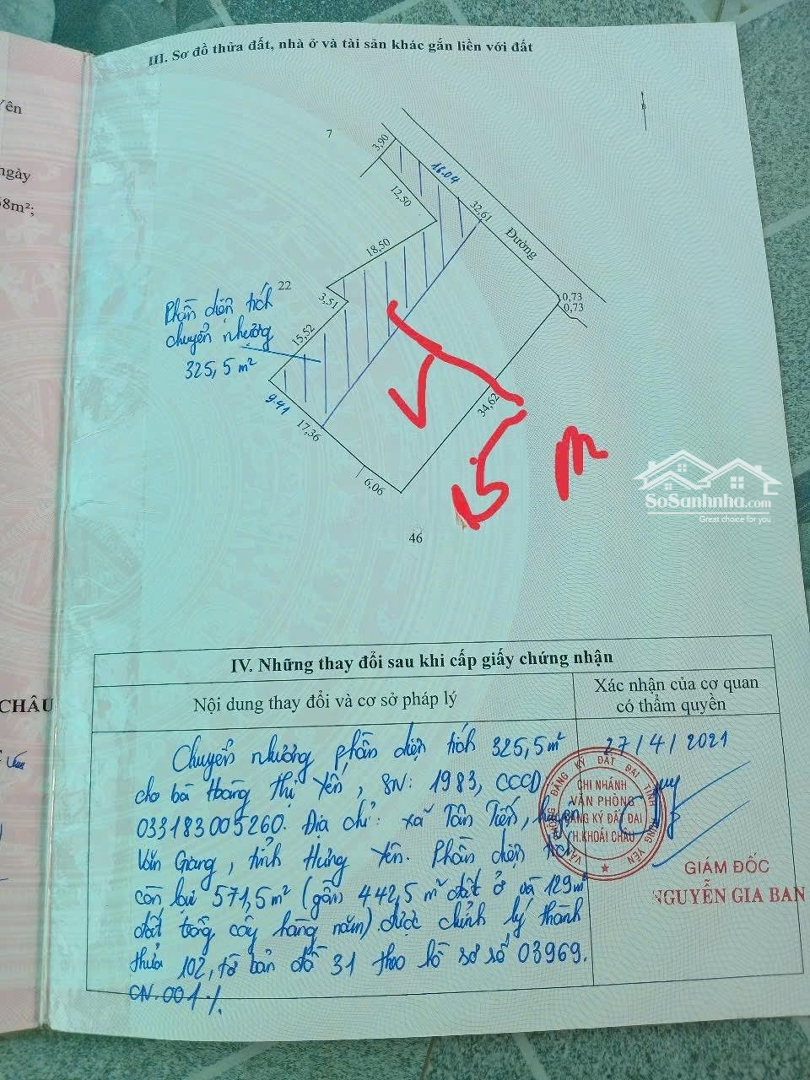 Yên
ngày
68m²;
CHÂU
III. Sơ đồ thửa đất, nhà ở và tài sản khác gắn liền với đất
B
7
3,90
16.04
12,50
32,61
Đường
18,50
22
3,51
0,73
0,73
Phần diện tích
chuyển nhượng
325,5 m²
15,52
9.41
17,36
34,62
6,06
15 m
46
SoSanhnha.com
Great choice for you
IV. Những thay đổi sau khi cấp giấy chứng nhận
Nội dung thay đổi và cơ sở pháp lý
Xác nhận của cơ quan
có thẩm quyền
Chuyển nhượng phần diện tích 325,5m²
cho bà Hoàng Thị Yến, SN: 1983, CCCD
033183005260. Địa chỉ: xã Tân Tiến, huyện
Văn Giang, tỉnh Hưng Yên. Phần diện tích
còn lại 571,5m² (gồm 442,5 m² đất ở và 129m²
đất trồng cây hàng năm) được chỉnh lý thành
thửa 102, tờ bản đồ 31 theo hồ sơ số 03969.
CN.001./.
27/4/2021
VĂN PHÒNG ĐĂNG KÝ ĐẤT ĐAI TỈNH HƯNG YÊN
CHI NHÁNH
VĂN PHÒNG
ĐĂNG KÝ ĐẤT ĐAI
H.KHOÁI CHÂU
GIÁM ĐỐC
NGUYỄN GIA BAN